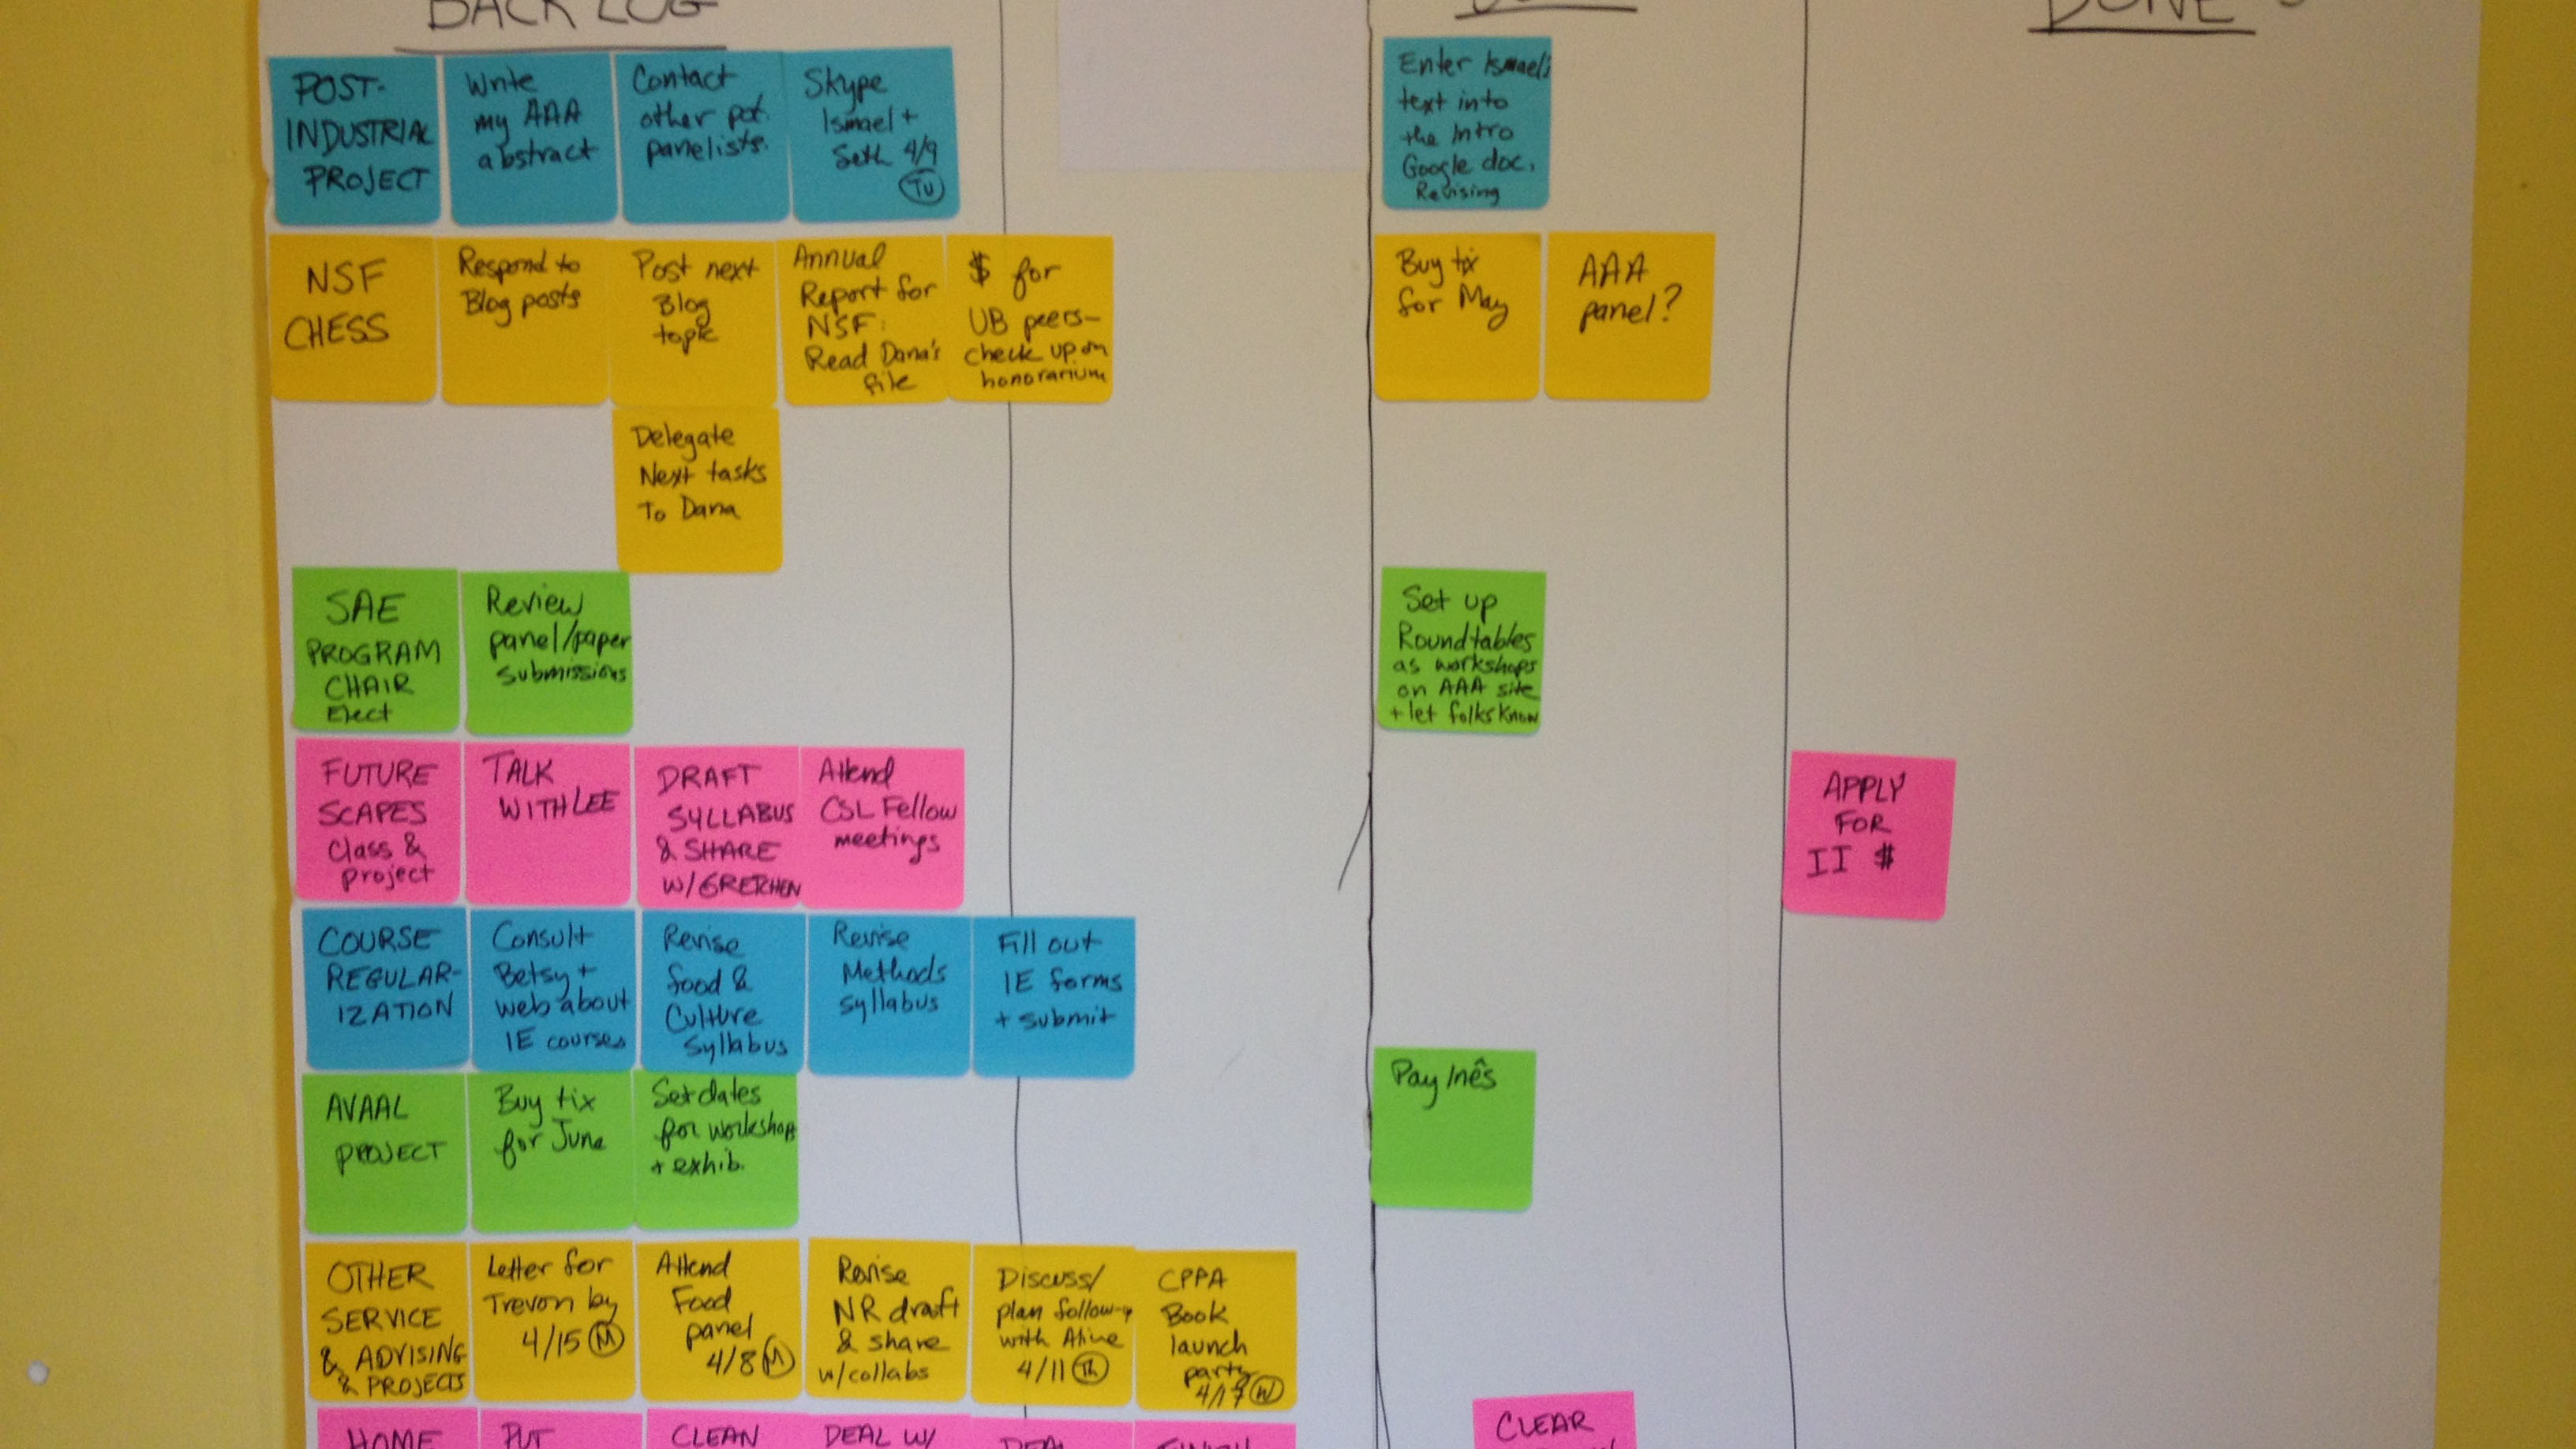 BACK LOG
DONE
POST-
INDUSTRIAL
PROJECT
Write
my AAA
abstract
Contact
other pot.
panelists.
Skype
Ismael +
Seth 4/9
Tu
Enter Ismael's
text into
the Intro
Google doc.
Revising
NSF
CHESS
Respond to
Blog posts
Post next
Blog
topic
Annual
Report for
NSF:
Read Dana's
file
$ for
UB peers-
check up on
honorarium
Buy tix
for May
AAA
panel?
Delegate
Next tasks
To Dana
SAE
PROGRAM
CHAIR
Elect
Review
panel/paper
submissions
Set up
Roundtables
as workshops
on AAA site
+ let folks know
FUTURE
SCAPES
Class &
project
TALK
WITH LEE
DRAFT
SYLLABUS
& SHARE
W/ GRETCHEN
Attend
CSL Fellow
meetings
APPLY
FOR
II $
COURSE
REGULAR-
IZATION
Consult
Betsy +
web about
IE courses
Revise
food &
Culture
Syllabus
Revise
Methods
syllabus
Fill out
IE forms
+ submit
AVAAL
PROJECT
Buy tix
for June
Set dates
for workshops
+ exhib.
Pay Inês
OTHER
SERVICE
& ADVISING
& PROJECTS
Letter for
Trevon by
4/15 M
Attend
Food
panel
4/8 M
Revise
NR draft
& share
w/collabs
Discuss/
plan follow-up
with
4/11 Th
CPPA
Book
launch
party
4/17 W
HOME
PUT
CLEAN
DEAL W/
DEAL
FINISH
CLEAR